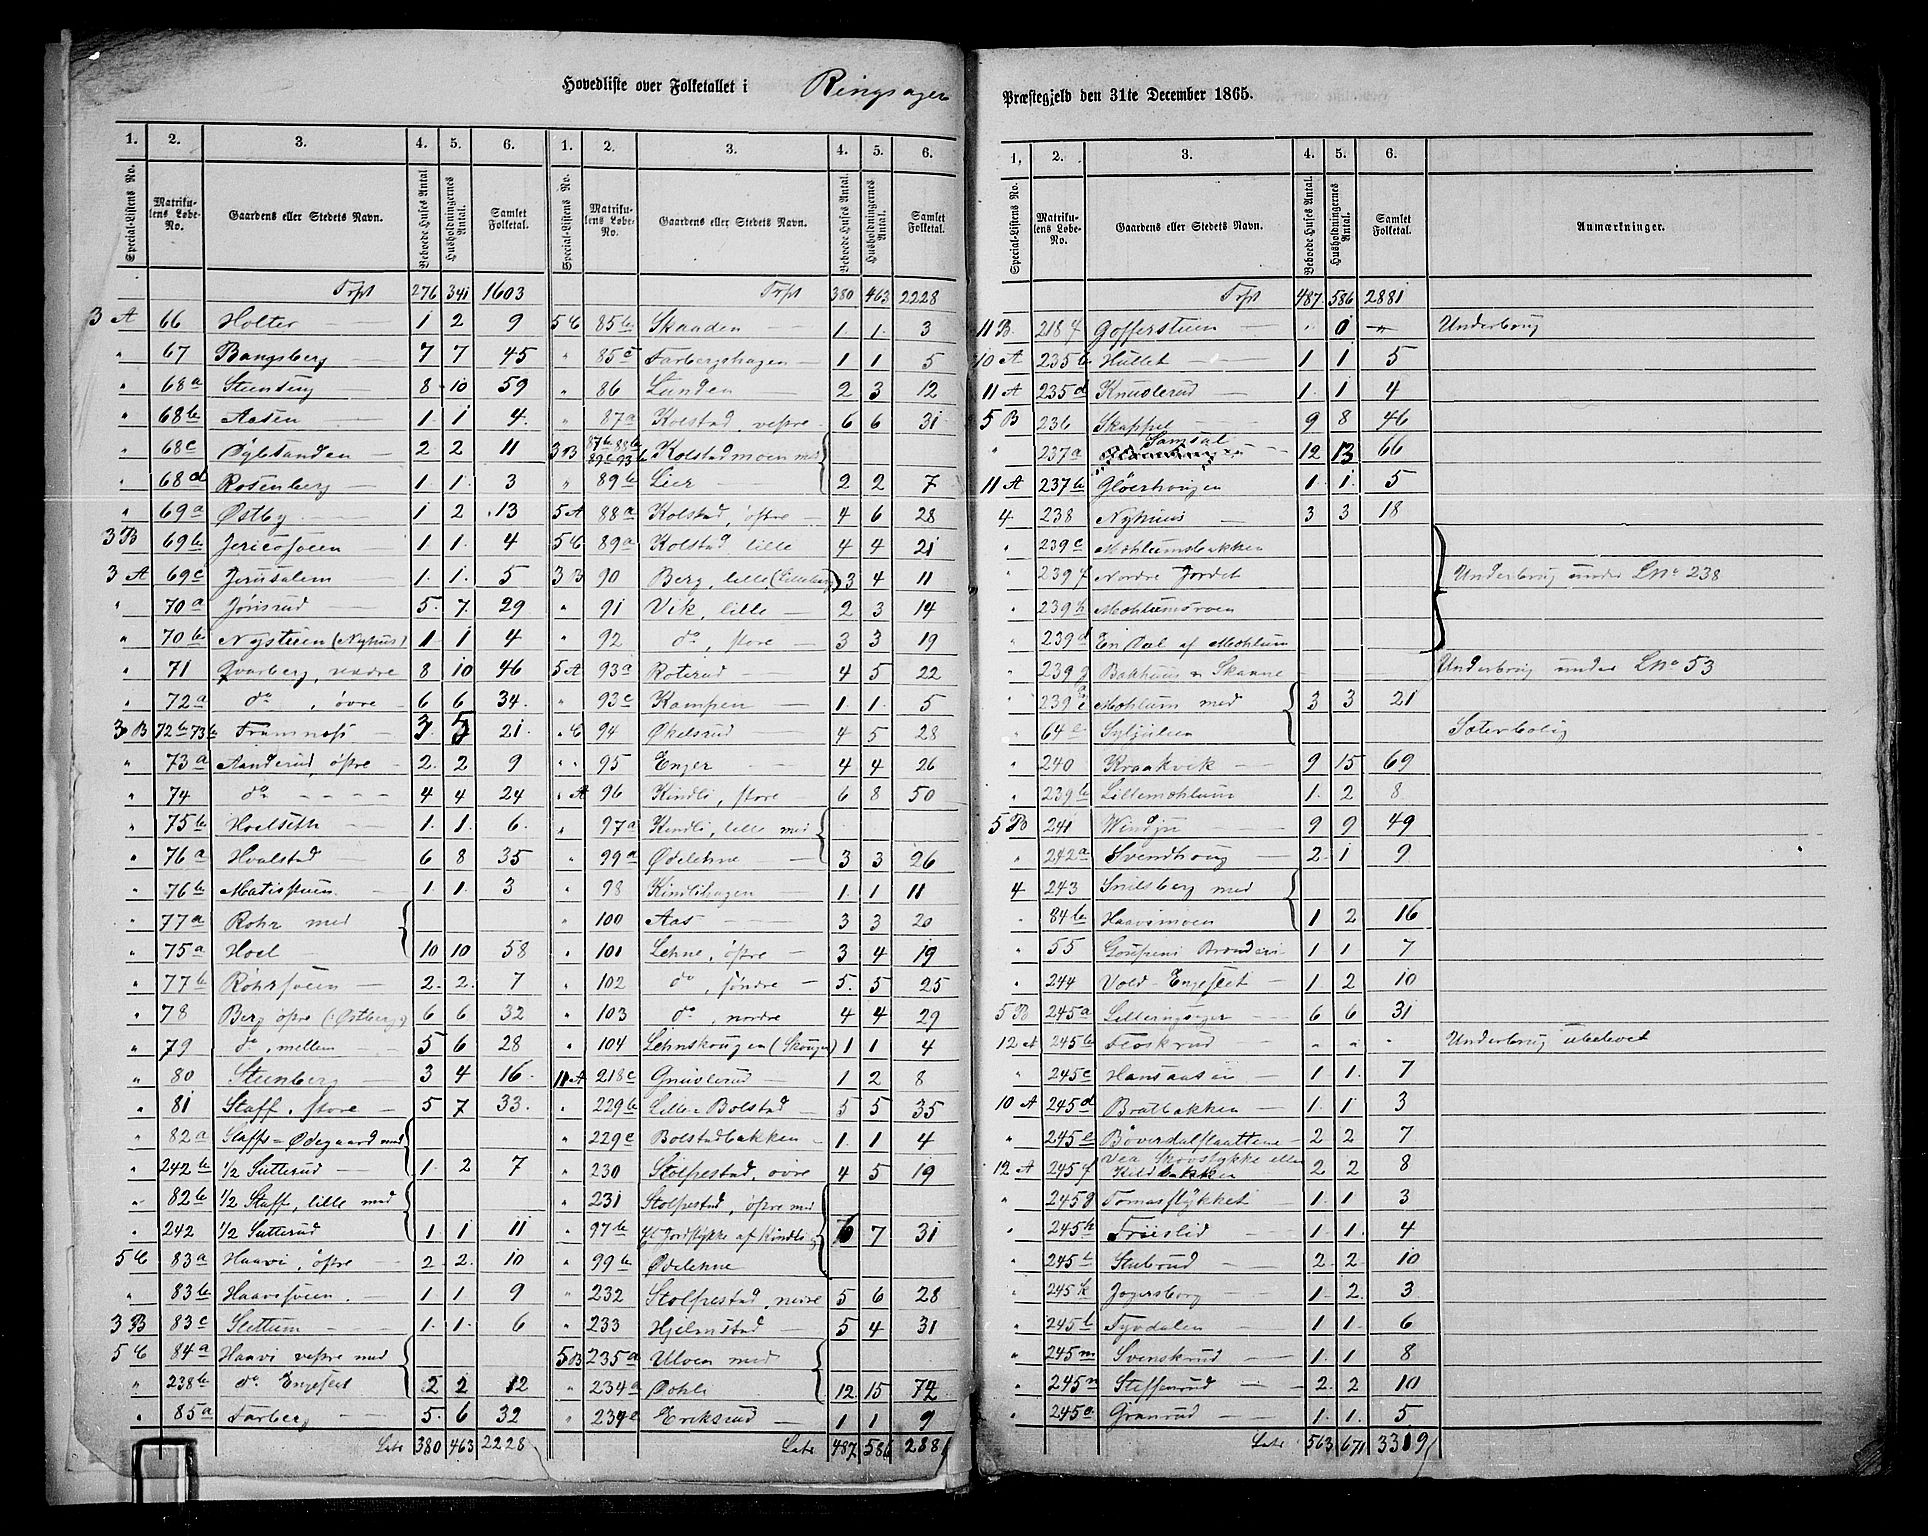 Hovedliste over Folketallet i Ringsager Præstegjeld den 31te December 1865.
1. 2. 3. 4. 5. 6. 1. 2. 3. 4. 5. 6.
Special-Listens No. Matrikulens Løbe-No. Gaardens eller Stedets Navn. Beboede Huses Antal. Husholdningernes Antal. Samlet Folketal. Special-Listens No. Matrikulens Løbe-No. Gaardens eller Stedets Navn. Beboede Huses Antal. Husholdningernes Antal. Samlet Folketal.
Trpt 276 341 1603
3 A 66 Holter 1 2 9
" 67 Bangsberg 7 7 45
" 68a Stensing 8 10 59
" 68b Aasen 1 1 4
" 68c Øylestanden 2 2 11
" 68d Rosenberg 1 1 3
" 69a Østby 1 2 13
3 B 69b Jericosveen 1 1 4
3 A 69c Jerusalem 1 1 5
" 70a Jønsrud 5 7 29
" 70b Nysteen (Nyhus) 1 1 4
" 71 Qvarberg, nedre 8 10 46
" 72a do, øvre 6 6 34
3 B 72b 73b Framnæss 3 5 21
" 73a Aanderud, østre 2 2 9
" 74 do 4 4 24
" 75b Hoelseth 1 1 6
" 76a Hvalstad 6 8 35
" 76b Matissveen 1 1 3
" 77a Rohr med
" 75a Hoel 10 10 58
" 77b Rohrsveen 2 2 7
" 78 Berg østre (Østberg) 6 6 32
" 79 do, mellem 5 6 28
" 80 Steenberg 3 4 16
" 81 Staff, store 5 7 33
" 82a Staffs=Ødegaard med
" 242b 1/2 Sætterud 1 2 7
" 82b 1/2 Staff, lille med
" 242 1/2 Sætterud 1 1 11
5 C 83a Haavi, østre 2 2 10
" 83b Haavisveen 1 1 9
3 B 83c Slettum 1 1 6
5 C 84a Haavi vestre med
" 238b do Engeset 2 2 12
" 85a Farberg 5 6 32
Late 380 463 2228
Trpt 380 463 2228
5 C 85b Skaaden 1 1 3
" 85c Farbergshagen 1 1 5
" 86 Lunden 2 3 12
" 87a Kolstad, vestre 6 6 31
3 B 87b 88b 89c 93b Kolstadmoen med
" 89b Lier 2 2 7
5 A 88a Kolstad, østre 4 6 28
5 C 89a Kolstad lille 4 4 21
3 B 90 Berg, lille (Lilleberg) 3 4 11
" 91 Vik, lille 2 3 14
" 92 do, store 3 3 19
5 A 93a Roterud 4 5 22
" 93c Kampen 1 1 5
" C 94 Økelsrud 4 5 28
" " 95 Enger 4 4 26
" A 96 Kindli, store 6 8 50
" 97a Kindli, lille med
" 99a Ødelehne 3 3 26
" 98 Kindlihagen 1 1 11
" 100 Aas 3 3 20
" 101 Lehne, østre 3 4 19
" 102 do, søndre 5 5 25
" 103 do, nordre 4 4 29
" 104 Lehnskougen (Skougen) 1 1 4
11 A 218c Gnuvlerud 1 2 8
" 229b Lille=Bolstad 5 5 35
" 229c Bolstadbakken 1 1 4
" 230 Stolpestad, øvre 4 5 19
" 231 Stolpestad, østre med
" 97b Et Jordstykke af Kindli 6 7 31
" 99b Ødelehne
" 232 Stolpestad, nedre 5 6 28
" 233 Hjelmstad 5 4 31
5 B 235a Ulven med
" 234a Dohli 12 15 72
" 239e Eriksrud 1 1 9
Late 487 586 2881
1. 2. 3. 4. 5. 6.
Special-Listens No. Matrikulens Løbe-No. Gaardens eller Stedets Navn. Beboede Huses Antal. Husholdningernes Antal. Samlet Folketal. Anmærkninger.
Trpt 487 586 2881
11 B. 218 f Gofferstuen " 0 " Underbrug
10 A 235b Hullet 1 1 5
11 A 235d Knudlerud 1 1 4
5 B 236 Skappel 9 8 46
" 237a Samsal 12 13 66
11 A 237b Gløerhougen 1 1 5
4 238 Nyhuus 3 3 18
" 239c Mohlumsbakken
" 239 f Nordre Jordet Underbrug under LNo 238
" 239h Mohlumsroen
" 239d En Deel af Mohlum
" 239g Bakhuus n Skanne Underbrug under LNo 53
" 239 Mohlum med 3 3 21
" 64c Syljulien Sæterbolig
" 240 Kraakvik 9 15 69
" 239b Lillemohlum 1 2 8
5 B 241 Windju 9 9 49
" 242a Svendhoug 2 1 9
4 243 Snilsberg med
" 84b Haavimoen 1 2 16
" 55 1 1 7
" 244 Vold=Engeset 1 2 10
5 B 245a Lilleringsager 6 6 31
12 A 245b Floskrud " " " Underbrug ubeboet
" 245c Hansaasen 1 1 7
10 A 245d Bratbakken 1 1 3
" 245e Böverdalslaattene 2 2 7
12 A 245 f Vea Skovstykke eller Kildbakken 2 2 8
" 245g Tomasstykket 1 1 3
" 245h Friislid 1 1 4
" 245i Stubrud 2 2 10
" 245k Jogersborg 1 2 3
" 245l Tyvdalen 1 1 6
" 245m Svenskrud 1 1 8
" 245n Steffenrud 2 2 10
" 245o Granrud 1 1 5
Late 563 671 3319